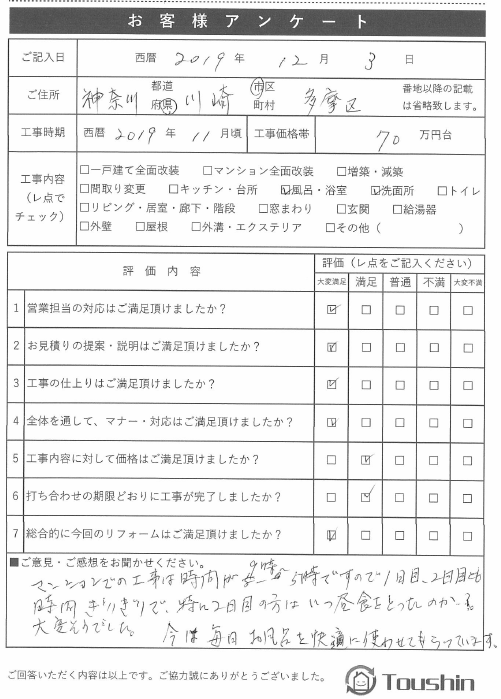 お客様アンケート
ご記入日 西暦 2019 年 12 月 3 日
ご住所 神奈川 都道府県 川崎 市区町村 多摩区 番地以降の記載は省略致します。
工事時期 西暦 2019 年 11 月頃 工事価格帯 70 万円台
工事内容（レ点でチェック）
□一戸建て全面改装 □マンション全面改装 □増築・減築
□間取り変更 □キッチン・台所 ☑風呂・浴室 ☑洗面所 □トイレ
□リビング・居室・廊下・階段 □窓まわり □玄関 □給湯器
□外壁 □屋根 □外溝・エクステリア □その他（ ）
評価内容 評価（レ点をご記入ください）
大変満足 満足 普通 不満 大変不満
1 営業担当の対応はご満足頂けましたか？ ☑ □ □ □ □
2 お見積りの提案・説明はご満足頂けましたか？ ☑ □ □ □ □
3 工事の仕上りはご満足頂けましたか？ ☑ □ □ □ □
4 全体を通して、マナー・対応はご満足頂けましたか？ ☑ □ □ □ □
5 工事内容に対して価格はご満足頂けましたか？ □ ☑ □ □ □
6 打ち合わせの期限どおりに工事が完了しましたか？ □ ☑ □ □ □
7 総合的に今回のリフォームはご満足頂けましたか？ ☑ □ □ □ □
■ご意見・ご感想をお聞かせください。
マンションでの工事は時間が9時から5時ですので1日目、2日目とも
時間ぎりぎりで、特に2日目の方はいつ昼食をとったのか
大変そうでした。 今は毎日お風呂を快適に使わせてもらっています。
ご回答いただく内容は以上です。ご協力誠にありがとうございました。
Toushin